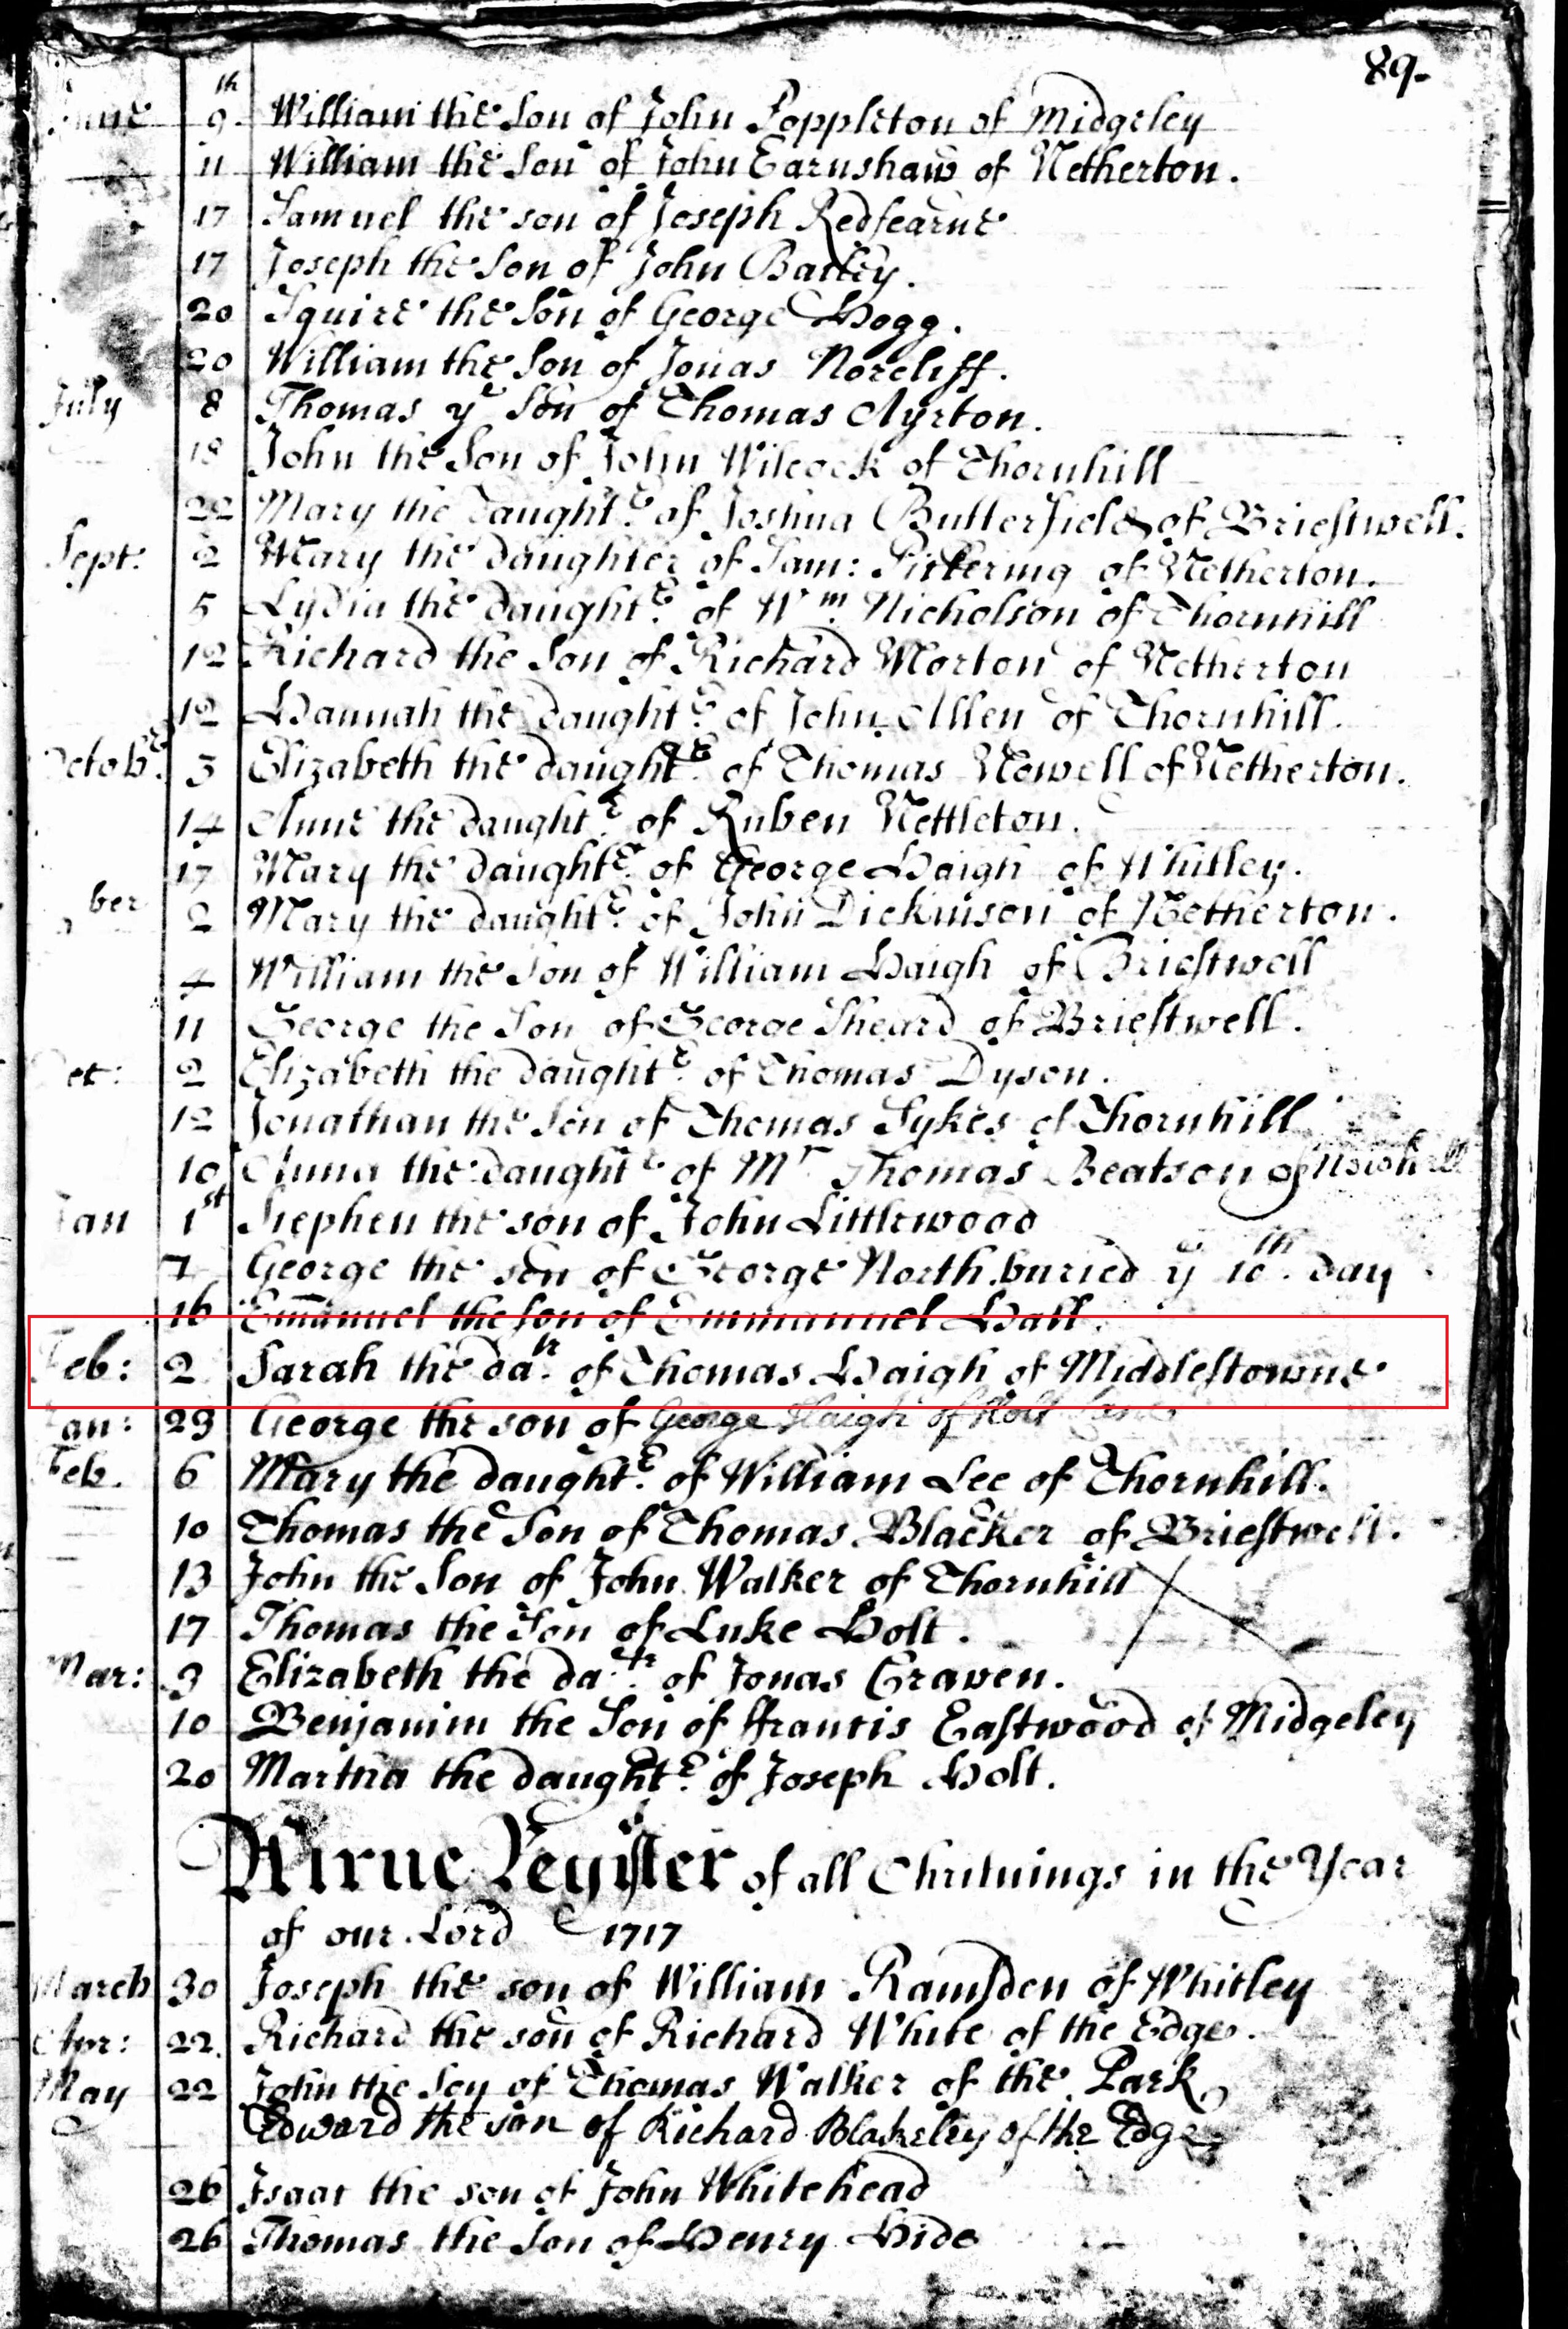 89.
June 9th William the Son of John Poppleton of Midgeley
11 William the Son of John Earnshaw of Netherton.
17 Samuel the son of Joseph Redfearne
17 Joseph the Son of John
20 Squire the Son of George Hogg.
20 William the Son of Jonas Norcliff.
July 8 Thomas ye Son of Thomas Ayrton.
18 John the Son of John Wilcock of Thornhill
22 Mary the Daughtr. of Joshua Butterfield of Briestwell.
Sept: 2 Mary the daughter of Sam: Pickering of Netherton.
5 Lydia the daughtr. of Wm. Nicholson of Thornhill
12 Richard the Son of Richard Morton of Netherton
12 Hannah the daughtr. of John Allen of Thornhill.
Octobr. 3 Elizabeth the daughtr. of Thomas Nowell of Netherton.
14 Anne the daughtr. of Ruben Nettleton.
17 Mary the daughtr. of George Haigh of Whitley.
ber 2 Mary the daughtr. of John Dickinson of Netherton.
4 William the Son of William Haigh of Briestwell
11 George the Son of George Sheard of Briestwell.
2 Elizabeth the daughtr. of Thomas Dyson.
12 Jonathan the Son of Thomas Sykes of Thornhill
10 Anna the daughtr of Mr Thomas Beatson of
Jan 1st Stephen the son of John Littlewood
7 George the son of George North buried ye 10th. day
16 Emanuel the son of Emmanuel Hall.
Feb: 2 Sarah the datr. of Thomas Haigh of Middlestowne
Jan: 29 George the son of George Haigh of Holt Lane
Feb. 6 Mary the daughtr. of William Lee of Thornhill.
10 Thomas the Son of Thomas Blacker of Briestwell.
13 John the Son of John Walker of Thornhill
17 Thomas the Son of Luke Holt.
Mar: 3 Elizabeth the datr. of Jonas Craven.
10 Benjamin the Son of ffrancis Eastwood of Midgeley
20 Martha the daughtr. of Joseph Holt.
A True Register of all Christnings in the Year
of our Lord 1717
March 30 Joseph the son of William Ramsden of Whitley
Apr: 22. Richard the son of Richard White of the Edge.
May 22 John the Son of Thomas Walker of the Park
Edward the son of Richard Blakeley of the Edge
26 Isaac the son of John Whitehead
26 Thomas the Son of Henry Hide